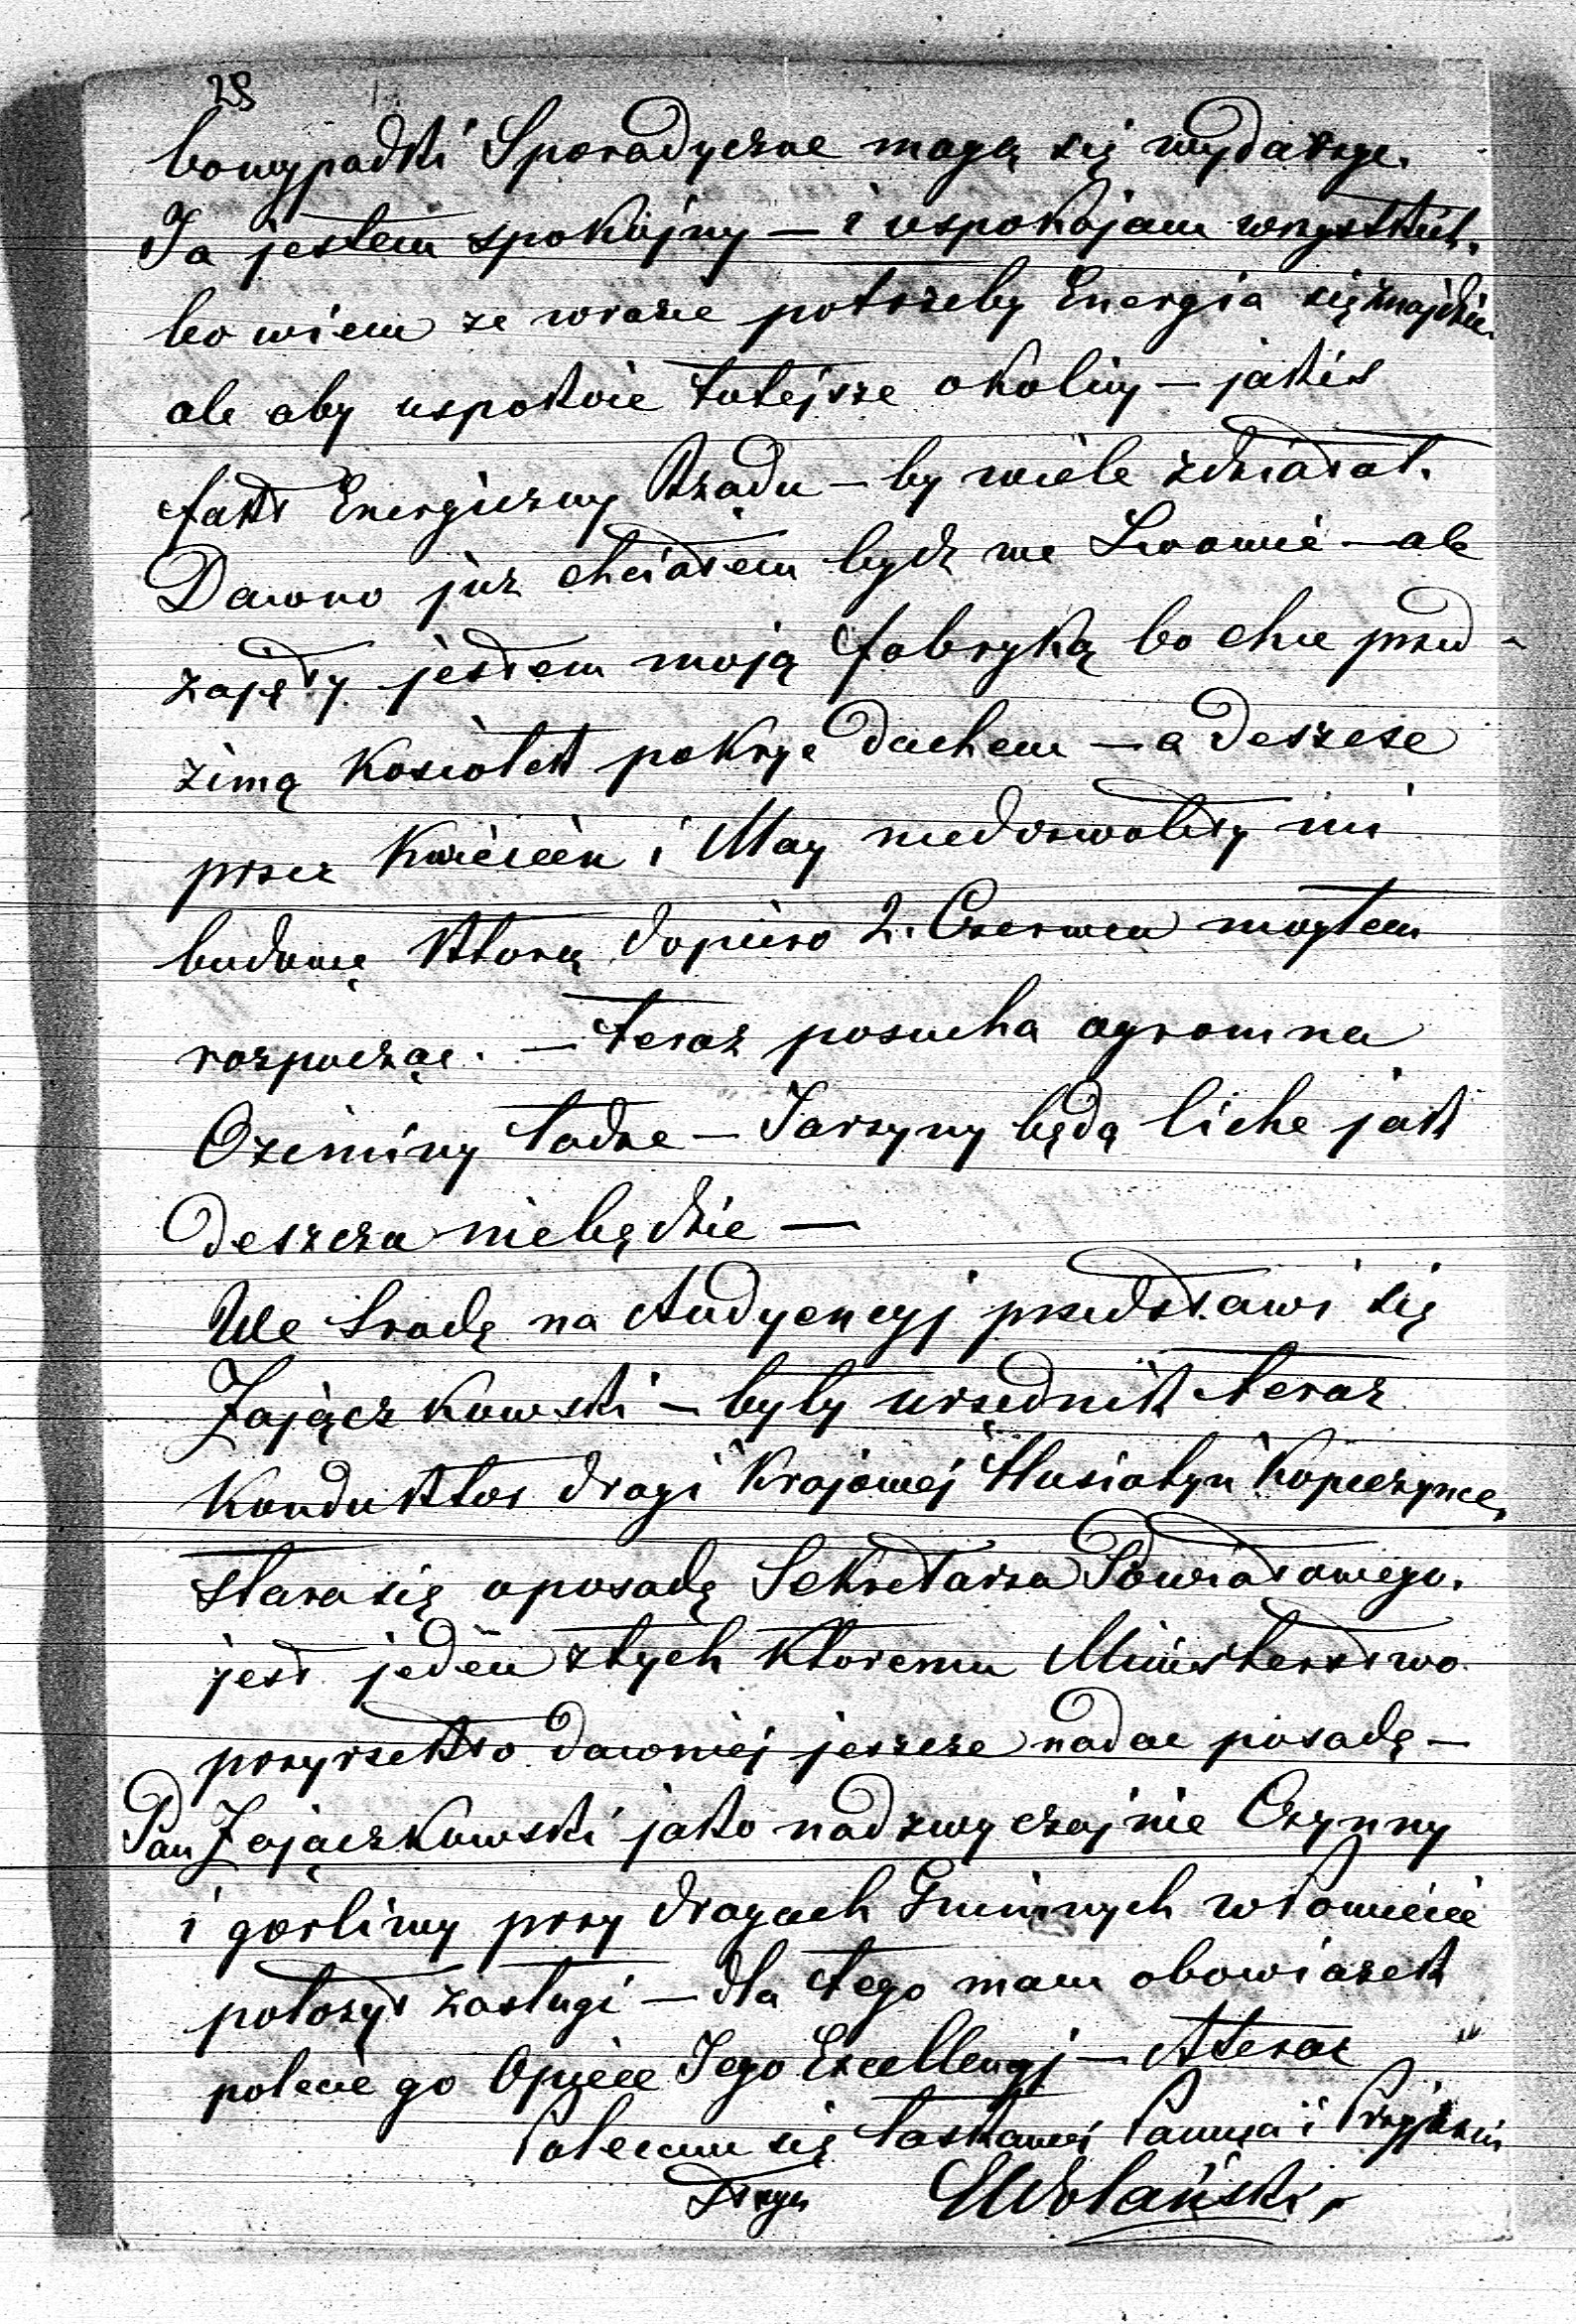 28
bo wypadki Sporadyczne mogą się wydarzyc.
Ja jestem spokojny — i uspokajam wszystkich.
bo wiem ze w razie potrzeby Energia się znajdzie
ale aby uspokoic tutejsze okolicy — jakis
fakt Energiczny Rządu — by wiele zdziałał.
Dawno juz chciałem bydz we Lwowie — ale
zajęty jestem moją fabryką bo chce przed-
zimą Kosciołek pokryc dachem — a deszcze
przez Kwiecien i May niedozwoliły mi
budowę Ktorą dopiero 2. Czerwca mogłem
rozpocząc. — teraz posucha ogromna
Oziminy ładne — Jarzyny będą liche jak
deszcza niebędzie —
We Srodę na Audyencyj przedstawi się
Zajączkowski — były urzędnik teraz
Konduktor drogi Krajowej Husiatyn Kopeczynce,
stara się oposadę Sekretarza Powiatowego.
jest jeden z tych Ktoremu Ministerstwo
przyrzekło dawniej jeszcze nadac posadę —
Pan Zajączkowski jako nadzwyczajnie Czynny
i gorliwy przy drogach Gminnych w Powiecie
położył zasługi — dla tego mam obowiązek
polecic go Opiece Jego Excellencyj — A teraz
Polecam się łaskawej Pamięci i Przyjazni
Sługa EWolański